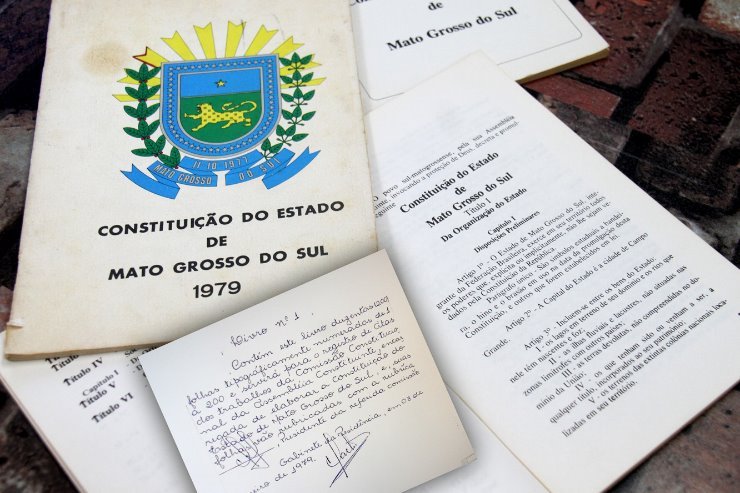 11·10·1977
MATO GROSSO DO SUL
CONSTITUIÇÃO DO ESTADO
DE
MATO GROSSO DO SUL
1979
de
Mato Grosso do Sul
povo sul-matogrossense, pela sua Assembléia
invocando a proteção de Deus, decreta e promul-
Constituição do Estado
de
Mato Grosso do Sul
Título I
Da Organização do Estado
Capítulo I
Disposições Preliminares
Artigo 1º - O Estado de Mato Grosso do Sul, inte-
grante da Federação Brasileira, exerce em seu território todos
os poderes que, explícita ou implicitamente, não lhe sejam ve-
dados pela Constituição da República.
Parágrafo único - São símbolos estaduais a bandei-
ra, o hino e o brasão em uso na data da promulgação desta
Constituição, e outros que forem estabelecidos em lei.
Artigo 2º - A Capital do Estado é a cidade de Campo
Grande.
Artigo 3º - Incluem-se entre os bens do Estado:
I - os lagos em terreno de seu domínio e os rios que
nele têm nascente e foz;
II - as ilhas fluviais e lacustres, não situadas nas
zonas limítrofes com outros países;
III - as terras devolutas, não compreendidas no do-
mínio da União;
IV - os que tenham sido ou venham a ser, a
qualquer título, incorporados ao seu patrimônio;
V - os terrenos das extintas colônias nacionais loca-
lizadas em seu território.
Título IV
Capítulo I
Título V
Título VI
Livro nº 1
Contém este livro duzentas (200)
folhas tipograficamente numeradas de 1
à 200 e servirá para o registro de Atas
dos trabalhos da Comissão Constitucio
nal da Assembléia Constituinte, encar
regada de elaborar a Constituição do
Estado de Mato Grosso do Sul, e, suas
folhas são rubricadas com a rubrica
Presidente da referida comissão
Gabinete da Presidência, em 03 de
eiro de 1979.